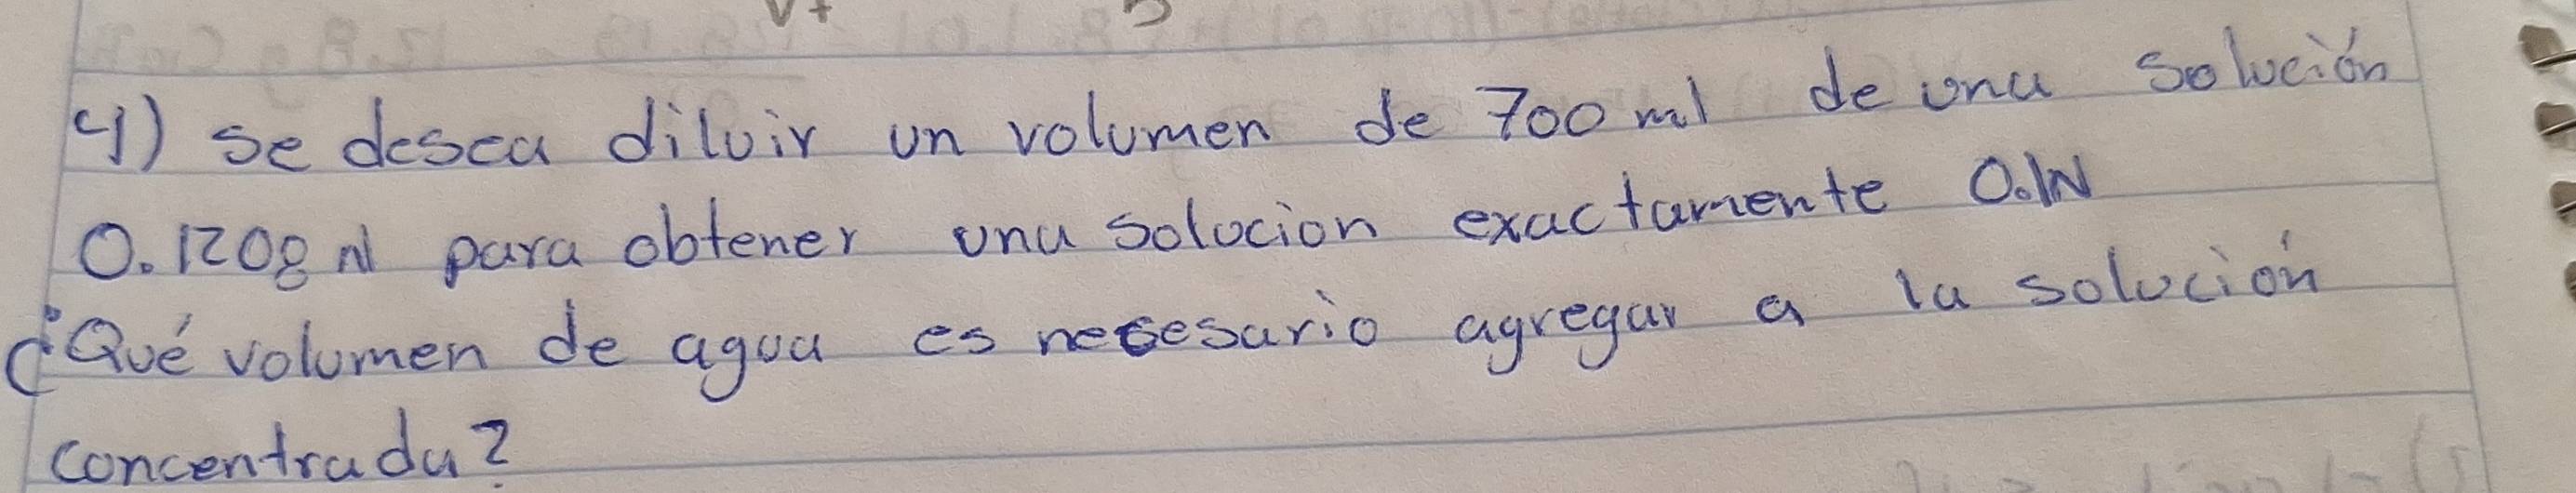 4) se desea diluir un volumen de 700 ml de una solución
0.1208 N para obtener una solucion exactamente 0.1N
¿Qué volumen de agua es necesario agregar a la solución
concentrada?